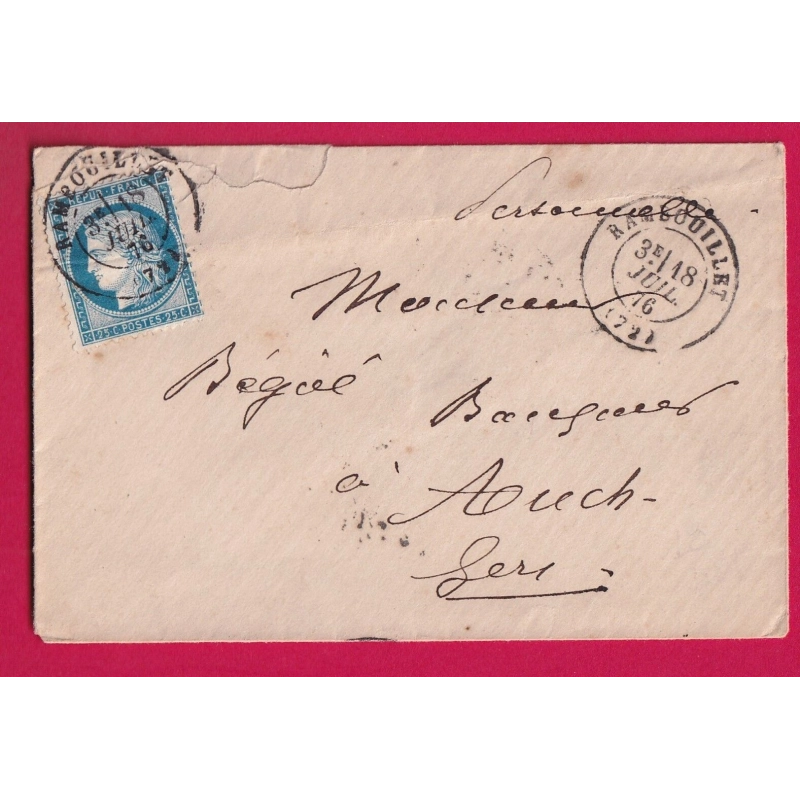 RAMBOUILLET
3E 18
JUIL.
76
(72)
REPUB. FRANC.
25 C. POSTES 25 C.
Personnelle
RAMBOUILLET
3E 18
JUIL.
76
(72)
Monsieur
Bégué Banquier
à Auch
Gers